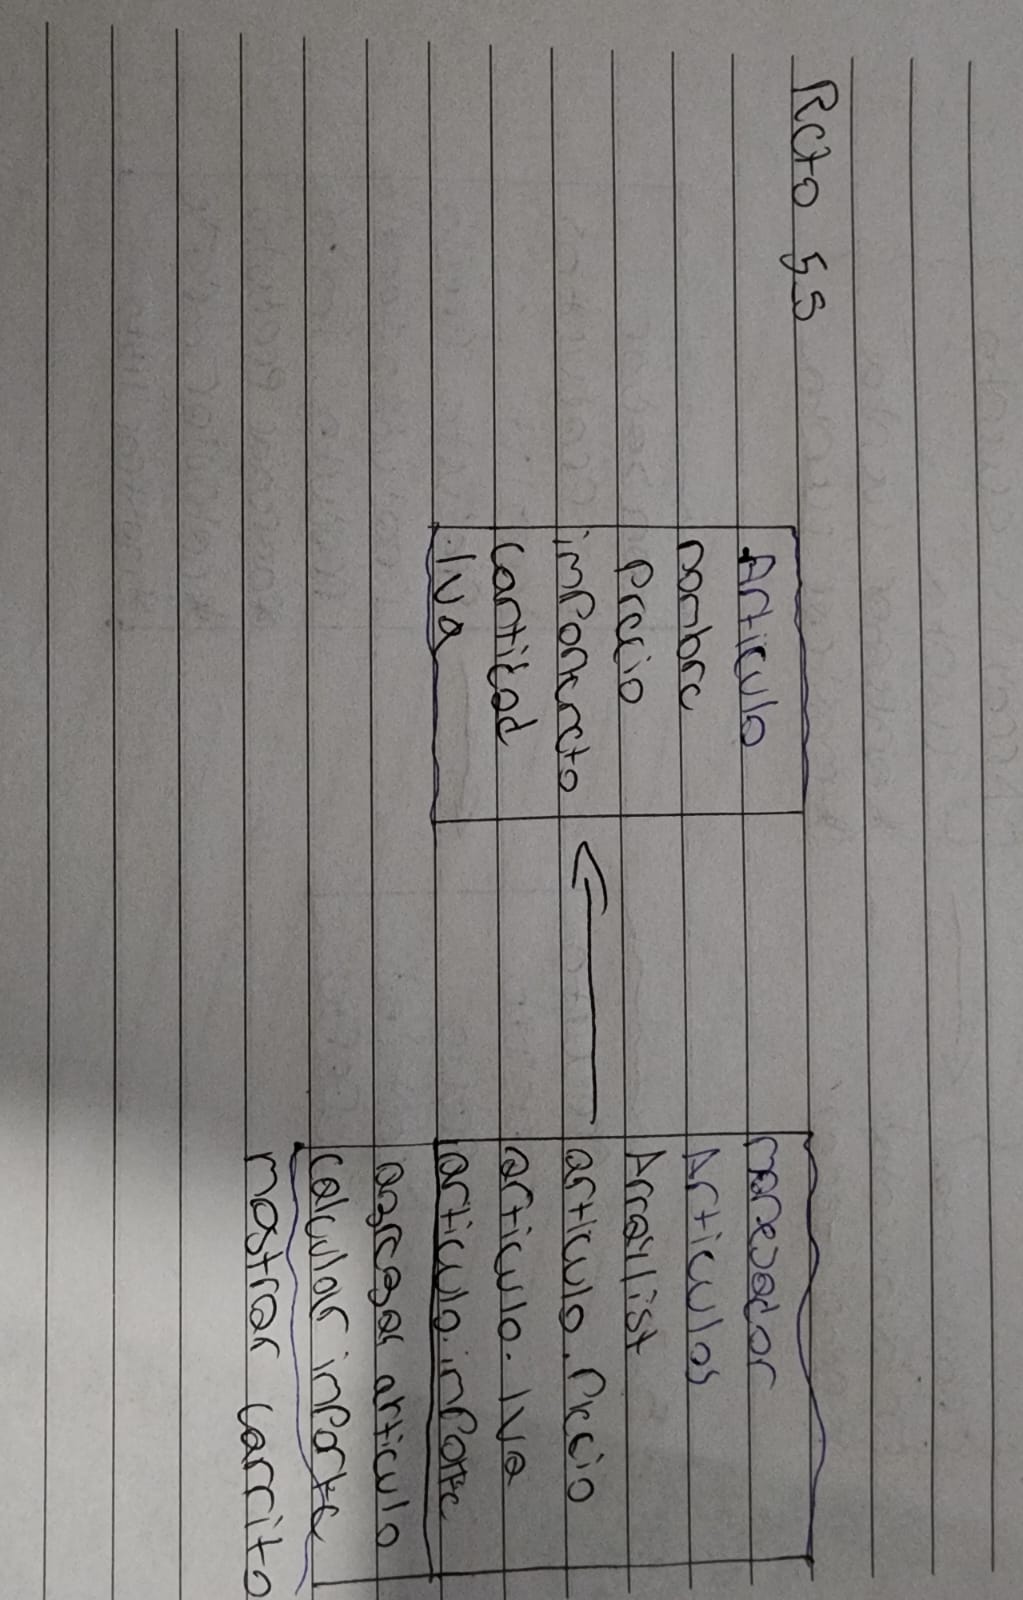 Reto 5,5
Articulo
nombre
Precio
imPortereto
cantidad
Iva
manejador
Articulos
Arraylist
articulo.Precio
articulo.Iva
articulo.imPorte
agregar articulo
calcular imPorte
mostrar carrito